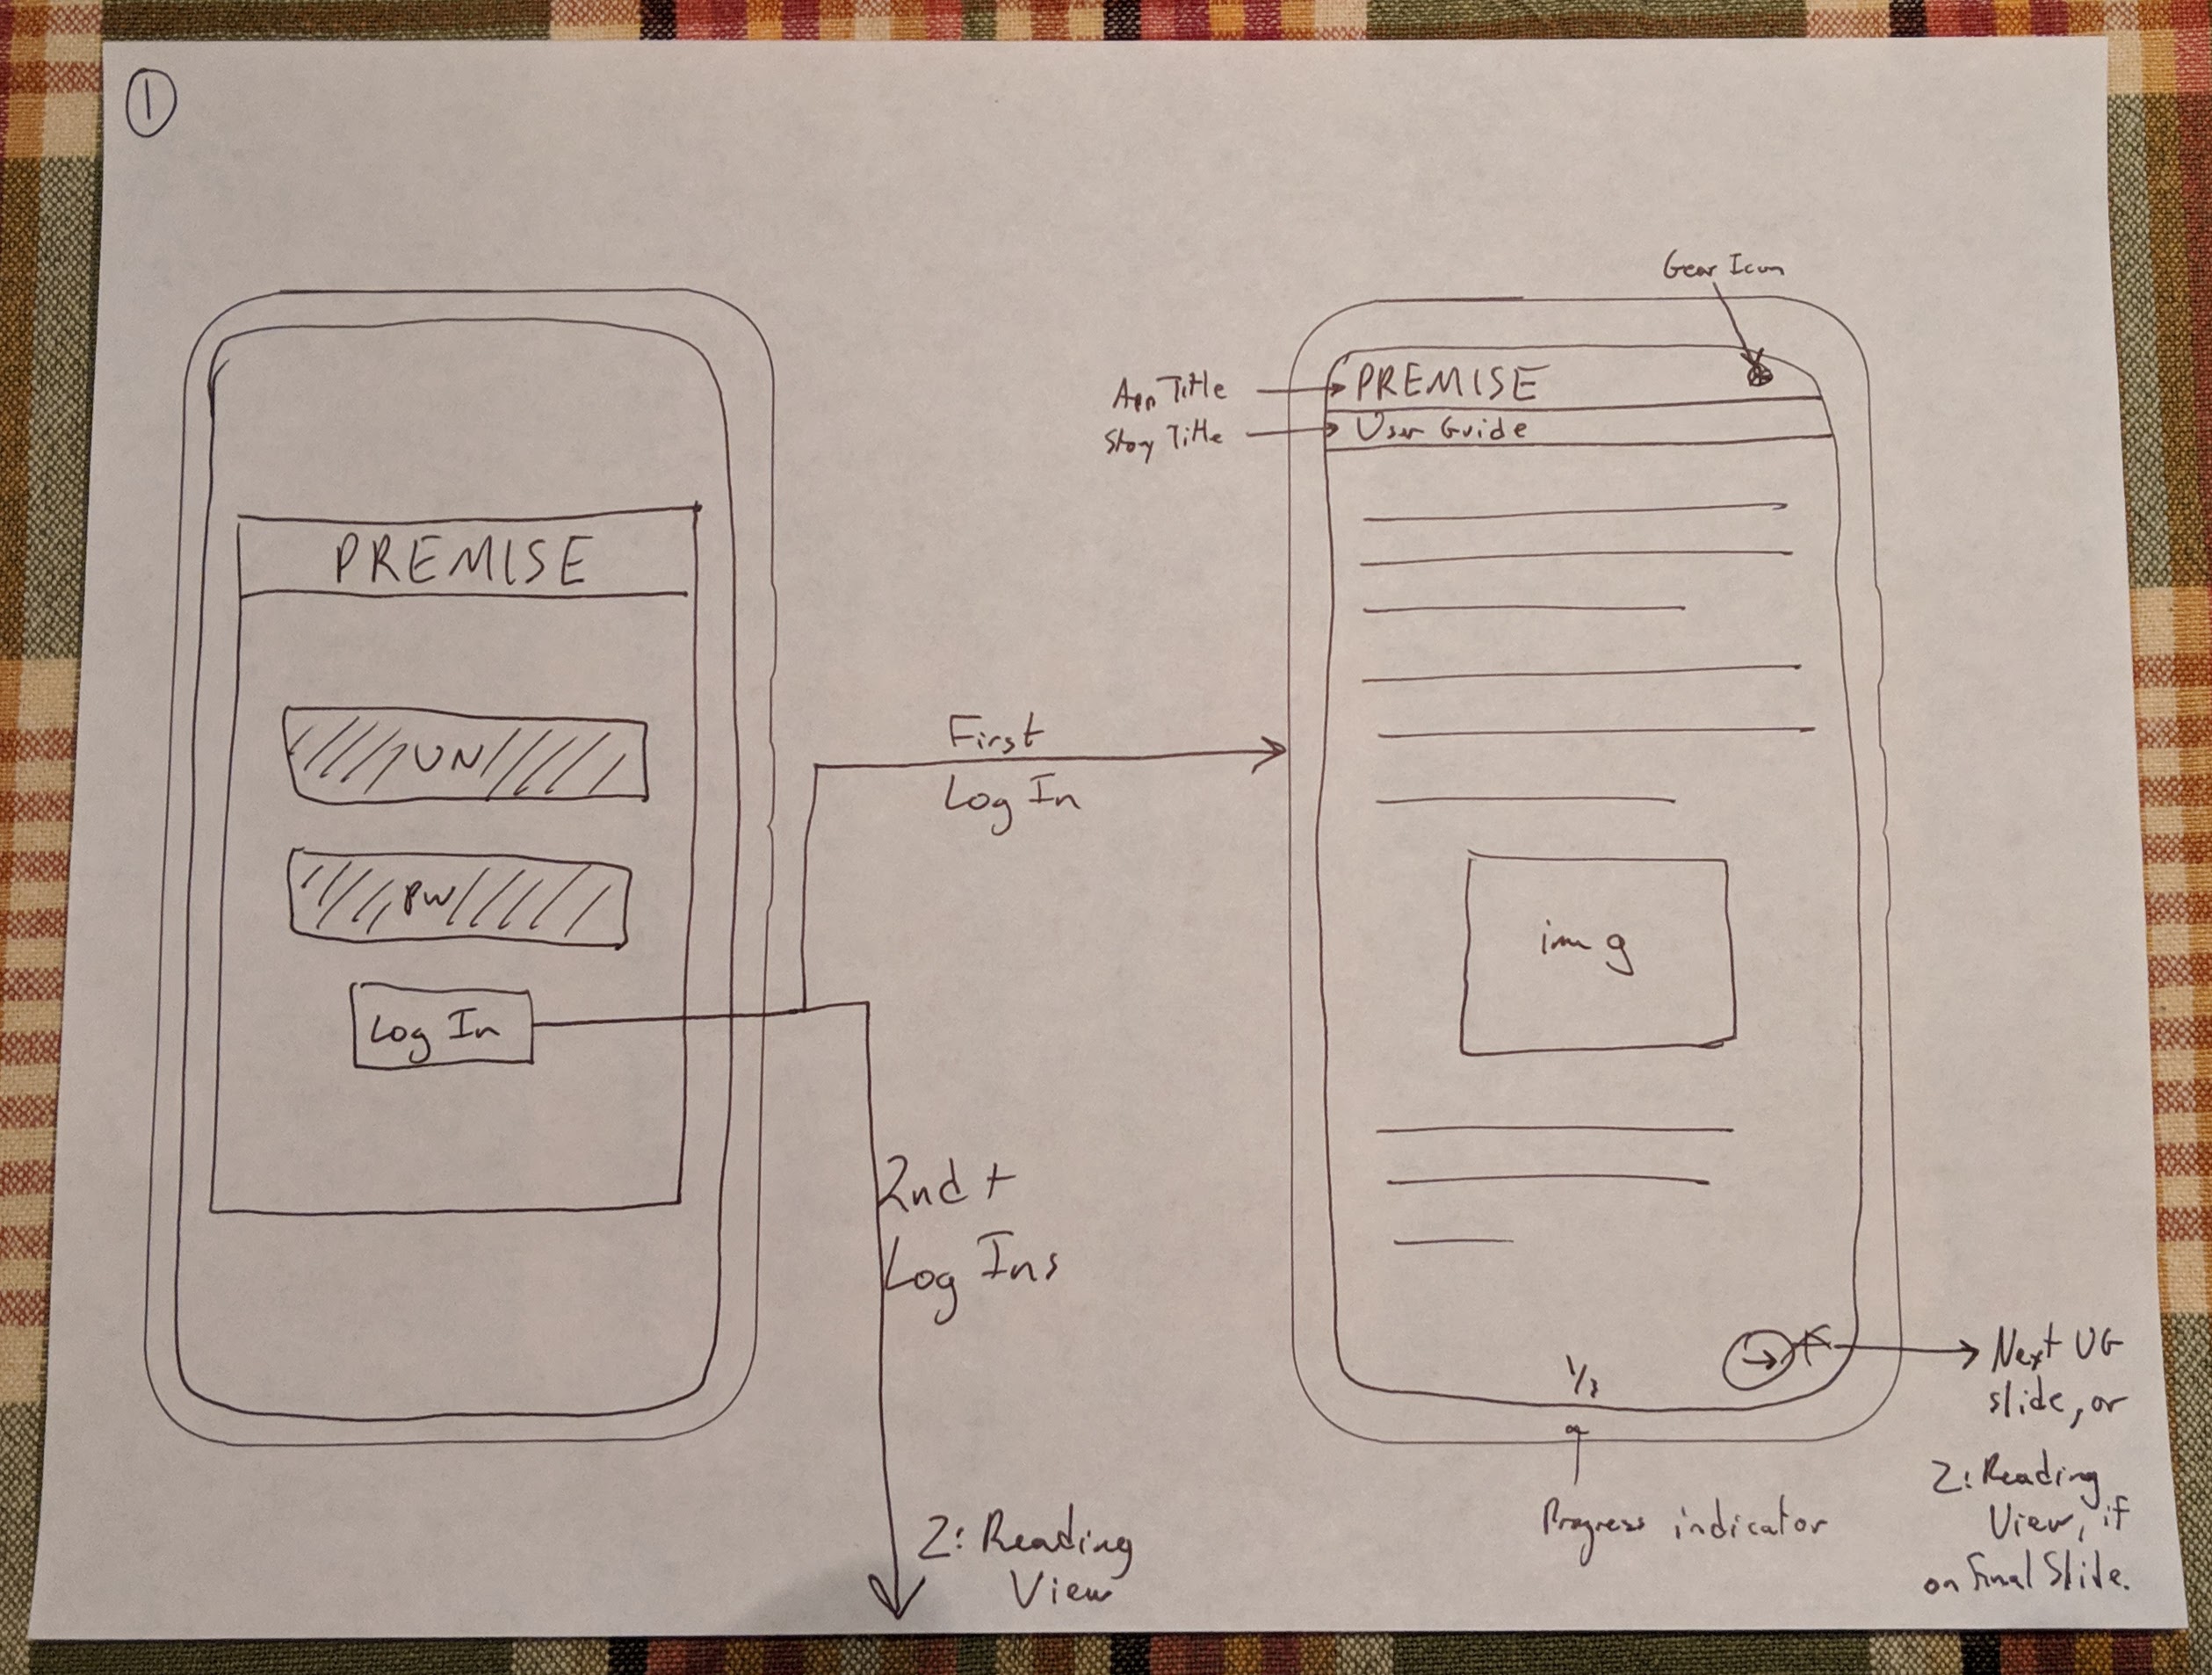 1
PREMISE
UN
PW
Log In
First
Log In
2nd +
Log Ins
2: Reading
View
Gear Icon
App Title
PREMISE
Story Title
User Guide
img
1/3
Progress indicator
Next UG
slide, or
2: Reading
View, if
on final Slide.